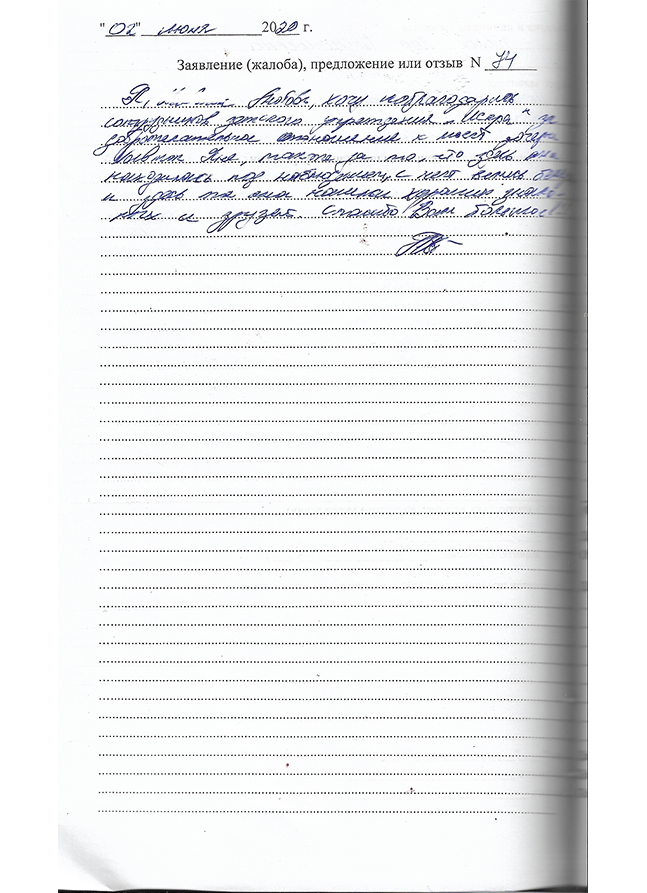 "02" июня 2020 г.
Заявление (жалоба), предложение или отзыв N 74
Я, Любовь, хочу поблагодарить
сотрудников детского учреждения "Искра" за
доброжелательное отношение к моей дочери
Яне, также за то, что дочь моя
находилась под наблюдением, с ней велись
и здесь та она нашли хороших знако-
мых и друзей спасибо Вам большое!